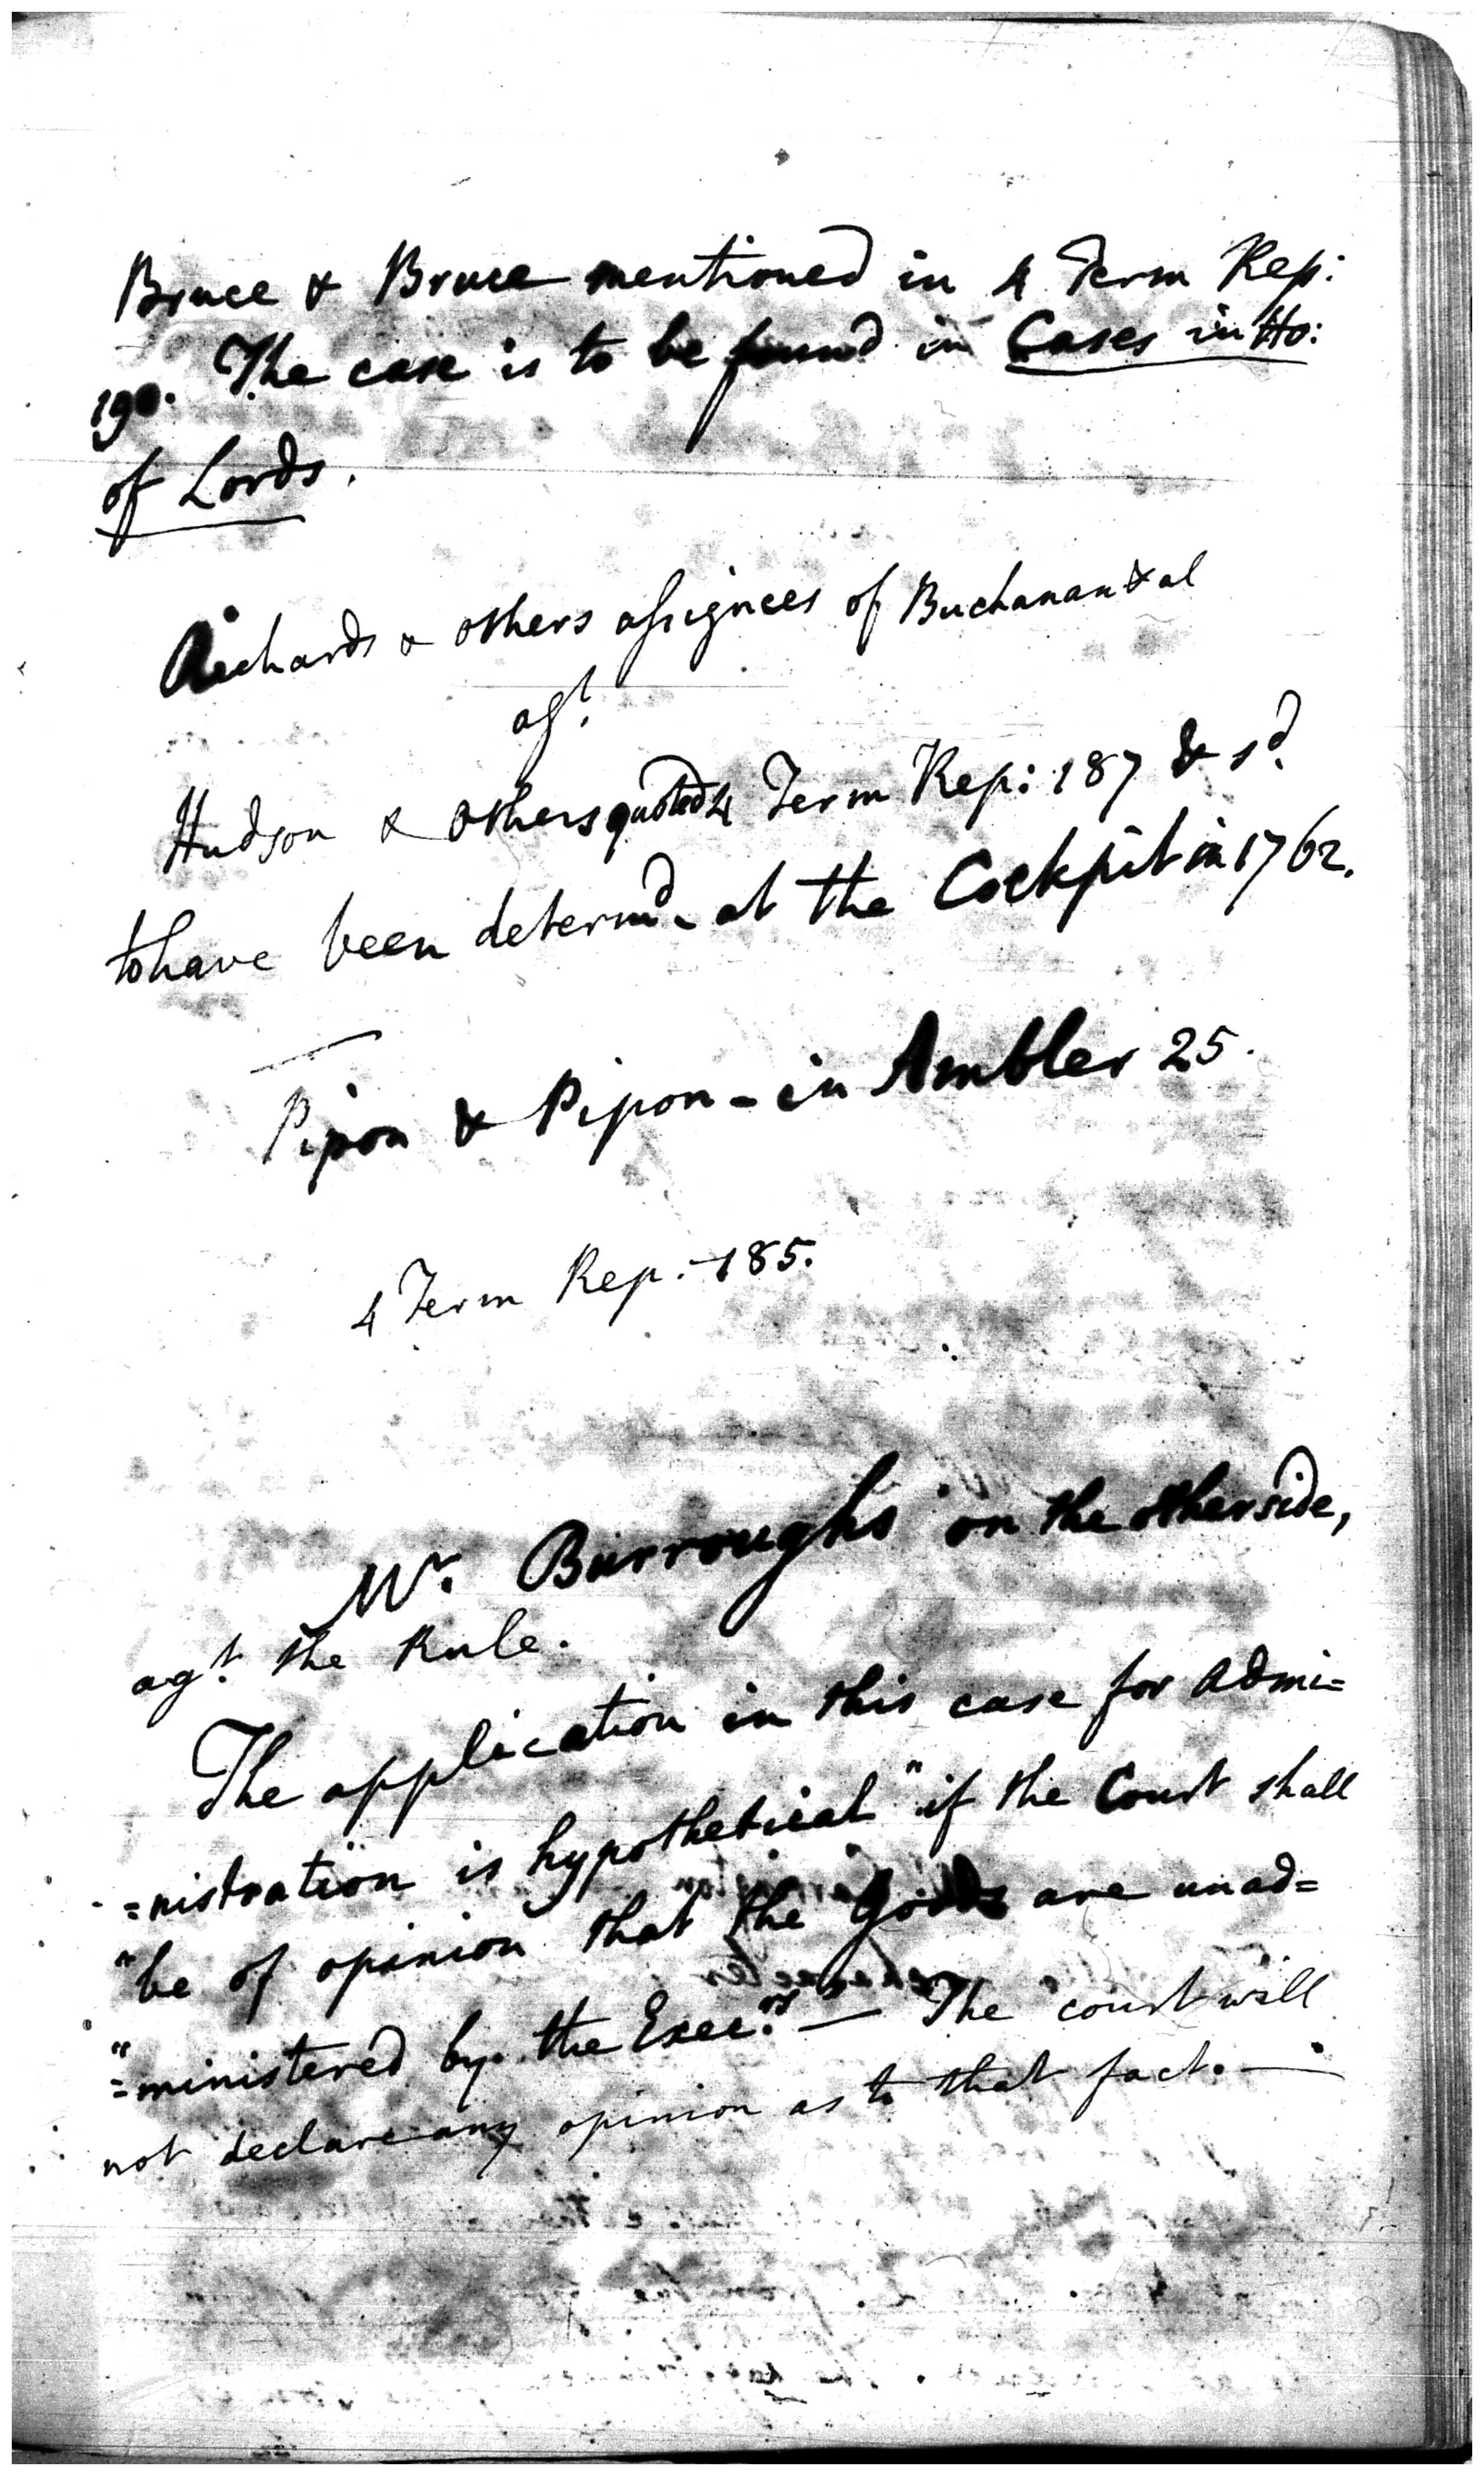 Bruce & Bruce mentioned in 4 Term Rep:
190. The case is to be found in Cases in Ho:
of Lords.
Richards & others assignees of Buchanan & al
agt.
Hudson & others quoted 4 Term Rep: 187 & sd.
to have been determd. at the Cockpit in 1762.
Pipon & Pipon - in Ambler 25.
4 Term Rep. 185.
Mr. Burroughs on the other side,
agt. the Rule.
The application in this case for admi=
=nistration is hypothetical "if the Court shall
"be of opinion that the goods are unad=
"=ministered by the Execrs. — The court will
not declare any opinion as to that fact. —